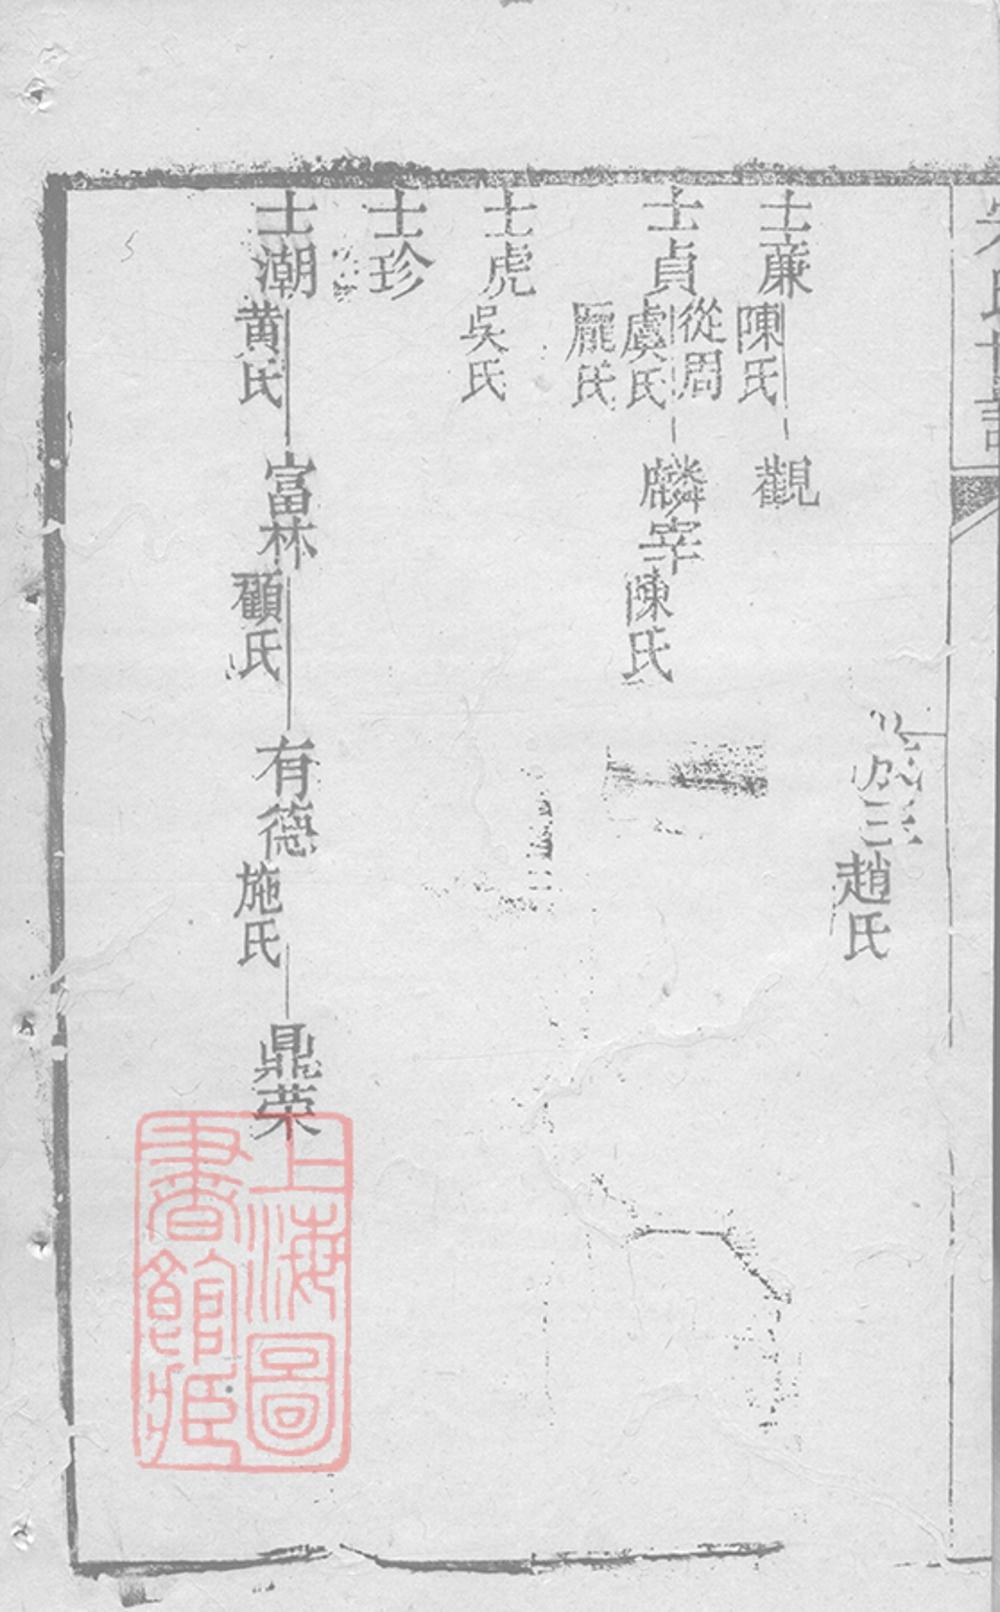 氏世譜
三 趙氏
士廉 陳氏 觀
士貞 從周 虞氏 龎氏 麟宰 陳氏
士虎 吳氏
士珍
士潮 黃氏 富林 顧氏 有德 施氏 鼎荣
上海圖書館藏